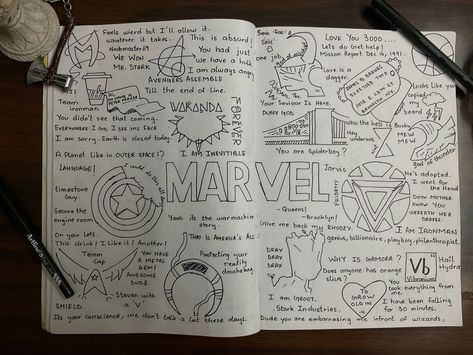 Feels wierd but I'll allow it.
whatever it takes.
Noobmaster69
WE WON
MR. STARK
This is absurd!
You had just
we have a hulk
I am always angry
AVENGERS ASSEMBLE
Till the end of line.
Team
ironman
You didn't see that coming.
EVERYWHERE I GO, I SEE HIS FACE
I am sorry. Earth is closed today.
WAKANDA
FOREVER
I AM INEVITIBLE
A Planet like in OUTER SPACE!)
LANGUAGE!
I could do this all day
timestone
Guy.
Secure the
engine room
On your left.
This drink! I Like it! Another!
Team
Cap
YOU HAVE A
METAL
ARM!
AWESOME
DUDE
Steven with
a 'V'
SHIELD
Its your conscience, we don't talk a lot these days.
Yeah its the warmachine
story.
THAT IS AMERICA'S ASS
Protecting your
reality
douchebag.
MARVEL
Soul For A
Soul
one job
LOVE YOU 3000....
Lets do Get help!
Mission Report Dec 16, 1991.
Love is a
dagger.
Your Saviour Is Here.
JAMES B. BARNES
BROOKLYN NY
Looks like you
copied
my
beard
PUNY GOD
Who the hell is
Bucky
MEW
MEW
god of thunder
Hey
underoos
You are Spiderboy?
He's adopted.
I went
for the
Head
DOTH MOTHER
KNOW YOU
WEARETH HER
DRAPES.
Jarvis
FRIDAY
-Queens!
-Brooklyn!
Give me back my RHODEY.
I AM IRONMAN
genius, billionaire, playboy, philanthropist.
DRAX
DRAX
DRAX
WHY IS GAMORA?
Does anyone has orange
slick?
Vb
Vibranium
Hail
Hydra
You took
everything from
me.
I AM GROOT.
. Stark Industries.
TO
GROW OLD
IN
I have been falling
for 30 minutes.
Dude you are embarrasing me infront of wizards.